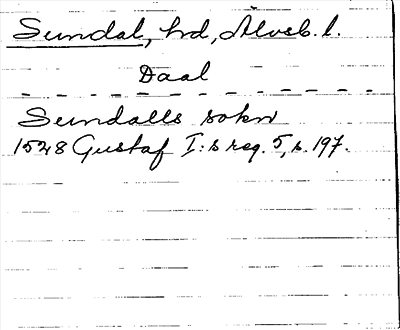 Sundal, hd, Älvsb. l.
Daal
Sundalls sokn
1528 Gustaf I:s reg. 5, s. 197.